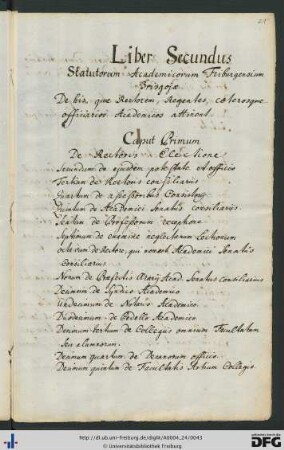 21
Liber Secundus
Statutorum Academicorum Friburgensium
Brisgojæ
De his, quæ Rectorem, Regentes, cæterosque
officiarios Academicos attinent.
Caput Primum
De Rectoris Electione
Secundum de ejusdem potestate et officio
Tertium de Rectoris consiliariis
Quartum de assessoribus Consistorii
Quintum de Academici Senatus Consiliariis.
Sextum de Professorum receptione
Septimum de examine neglectarum Lectionum
Octavum de Rectore, qui non est Academici Senatus
consiliarius
Nonum de Præfectis Ærarii Acad. Senatus consiliariis
Decimum de Syndico Academico
Undecimum de Notario Academico
Duodecimum de Pedello Academico
Decimum tertium de Collegiis omnium Facultatum
seu alumnorum.
Decimum quartum de Decanorum officio
Decimum quintum de Facultatis Artium Collegio.
http://dl.ub.uni-freiburg.de/diglit/A0004_24/0043
© Universitätsbibliothek Freiburg
gefördert durch die
DFG